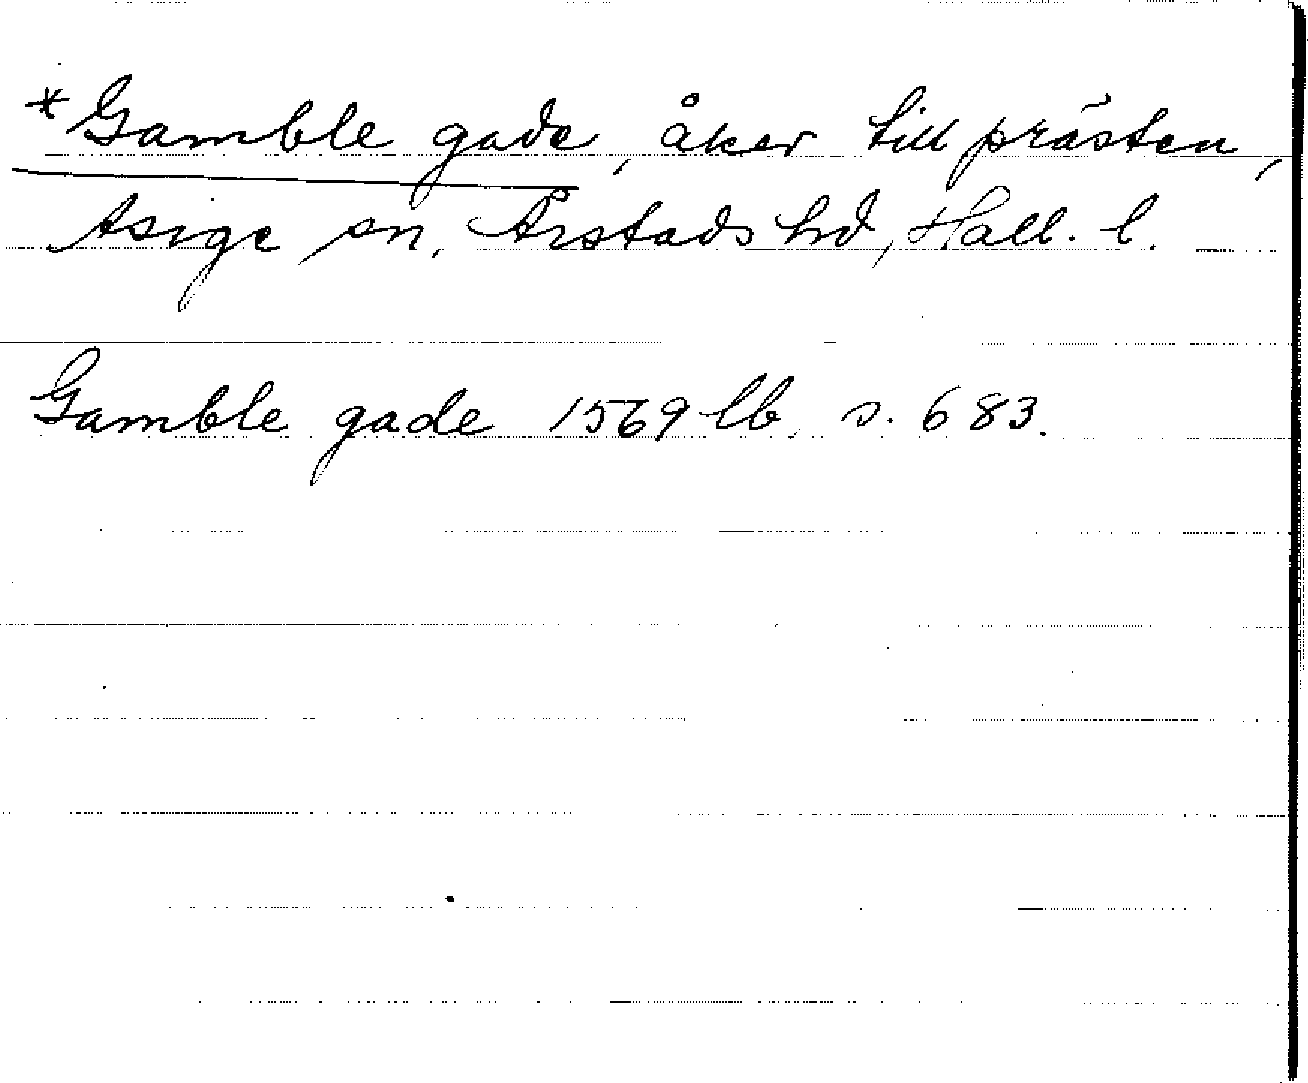 *Gamble gade, åker till prästen,
Asige sn, Årstads hd, Hall. l.
Gamble gade 1569 lb. s. 683.